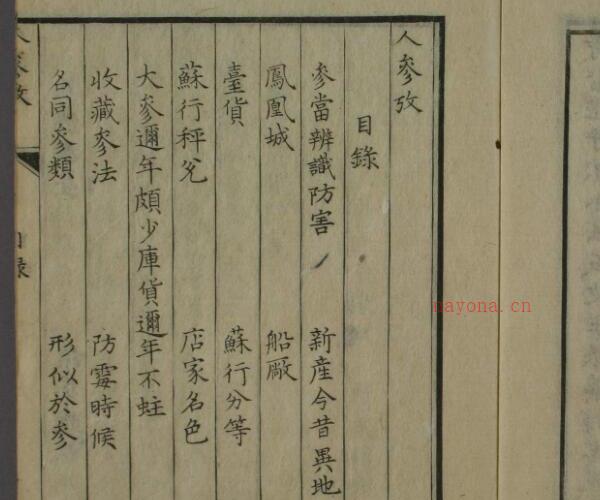 人參攷
目錄
參當辨識防害 新産今昔異地
鳳凰城 船厰
臺貨 蘇行分等
蘇行秤兌 店家名色
大參邇年頗少庫貨邇年不蛀
收藏參法 防霉時候
名同參類 形似於參
nayona.cn